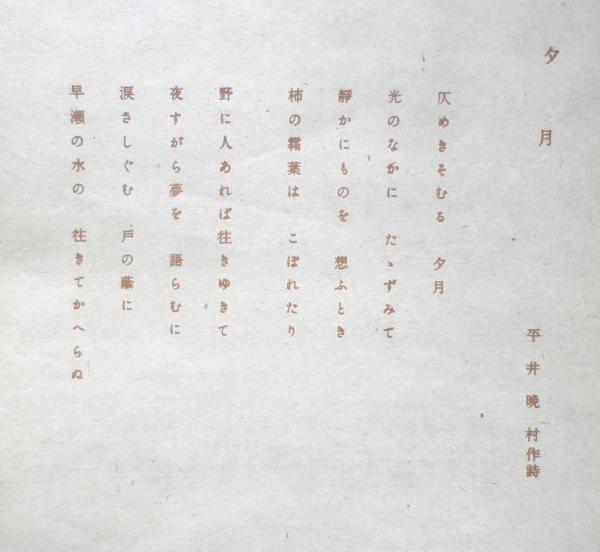 夕月
平井晩村作詩
仄めきそむる 夕月
光のなかに たゝずみて
静かにものを 想ふとき
柿の霜葉は こぼれたり
野に人あれば往きゆきて
夜すがら夢を 語らむに
涙さしぐむ 戸の蔭に
早瀬の水の 往きてかへらぬ